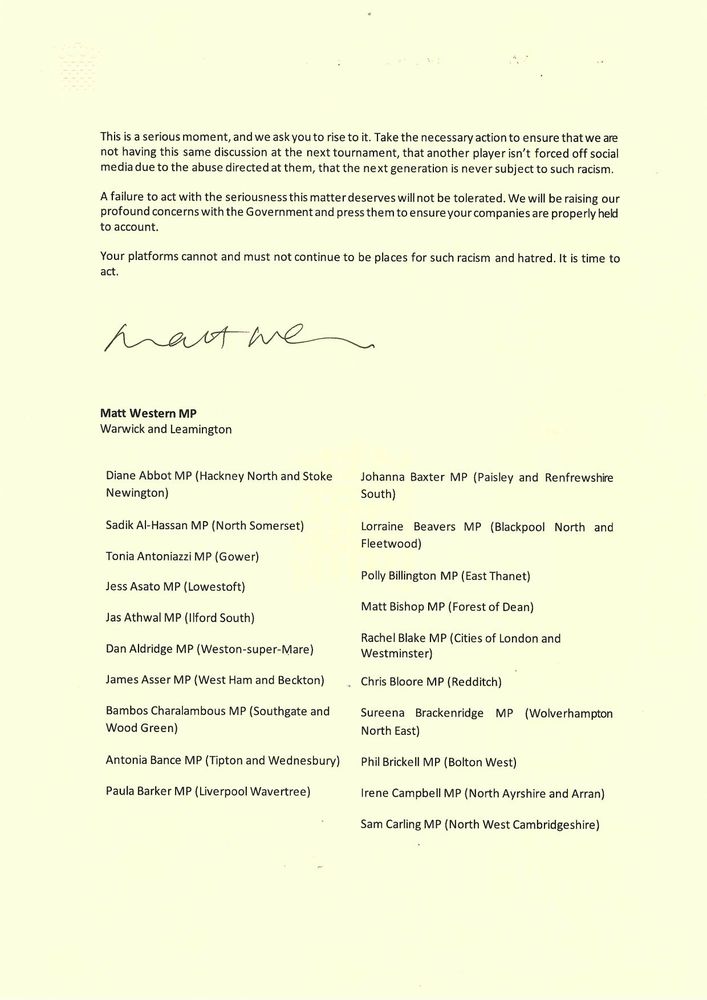 This is a serious moment, and we ask you to rise to it. Take the necessary action to ensure that we are
not having this same discussion at the next tournament, that another player isn't forced off social
media due to the abuse directed at them, that the next generation is never subject to such racism.
A failure to act with the seriousness this matter deserves will not be tolerated. We will be raising our
profound concerns with the Government and press them to ensure your companies are properly held
to account.
Your platforms cannot and must not continue to be places for such racism and hatred. It is time to
act.
Matt We
Matt Western MP
Warwick and Leamington
Diane Abbot MP (Hackney North and Stoke
Newington)
Sadik Al-Hassan MP (North Somerset)
Tonia Antoniazzi MP (Gower)
Jess Asato MP (Lowestoft)
Jas Athwal MP (Ilford South)
Dan Aldridge MP (Weston-super-Mare)
James Asser MP (West Ham and Beckton)
Bambos Charalambous MP (Southgate and
Wood Green)
Antonia Bance MP (Tipton and Wednesbury)
Paula Barker MP (Liverpool Wavertree)
Johanna Baxter MP (Paisley and Renfrewshire
South)
Lorraine Beavers MP (Blackpool North and
Fleetwood)
Polly Billington MP (East Thanet)
Matt Bishop MP (Forest of Dean)
Rachel Blake MP (Cities of London and
Westminster)
Chris Bloore MP (Redditch)
Sureena Brackenridge MP (Wolverhampton
North East)
Phil Brickell MP (Bolton West)
Irene Campbell MP (North Ayrshire and Arran)
Sam Carling MP (North West Cambridgeshire)